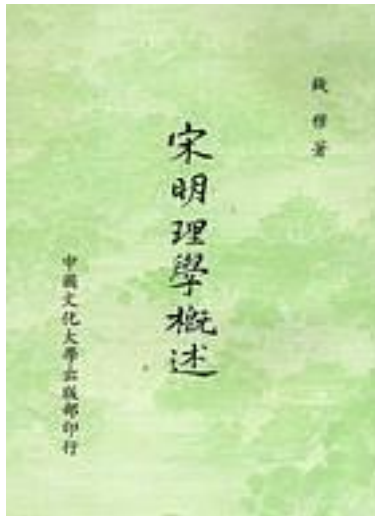 錢穆著
宋明理學概述
中國文化大學出版部印行